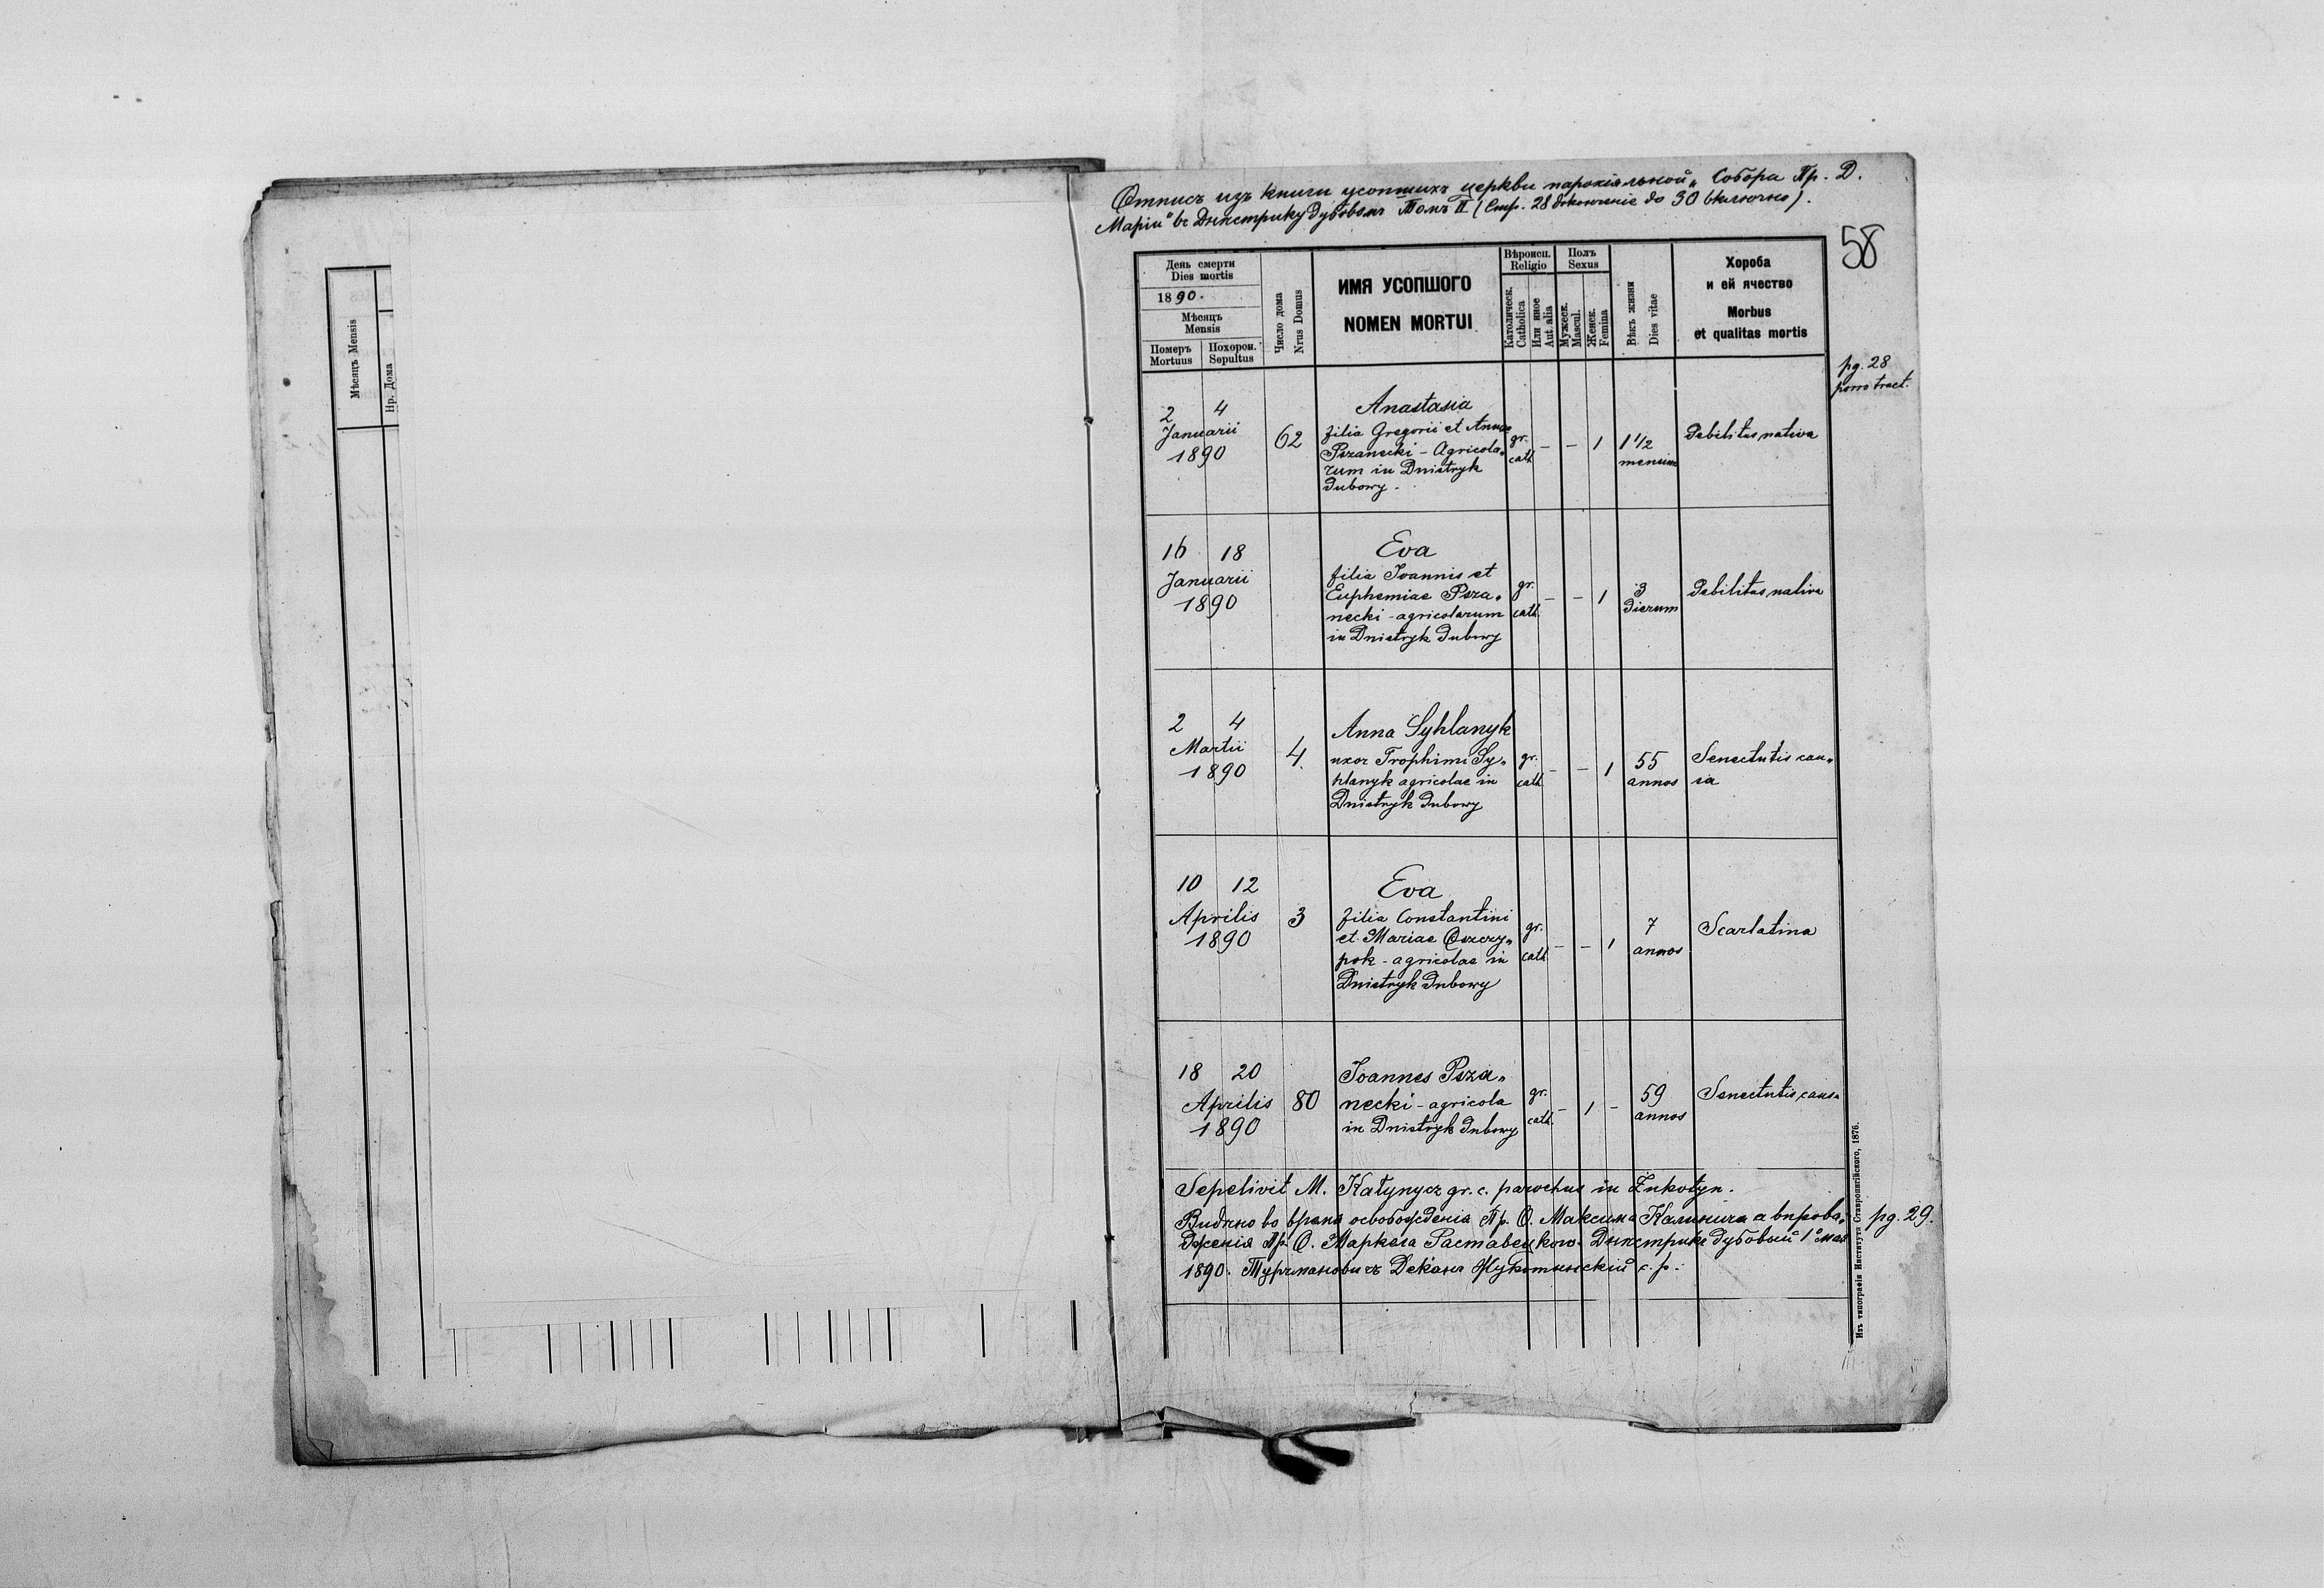 Отпись изъ книги усопшихъ церкви парохіяльной „Собора Пр. Д.
Маріи" въ Днистрику дубовомъ Томъ II (Стр. 28 докончение до 30 включно).
58
Мѣсяцъ Mensis
Нр. Дома
День смерти
Dies mortis
1890.
Мѣсяцъ
Mensis
Померъ
Mortuus
Похорон.
Sepultus
Число дома
Nrus Domus
ИМЯ УСОПШОГО
NOMEN MORTUI
Вѣроисп.
Religio
Католическ.
Catholica
Или иное
Aut. alia
Полъ
Sexus
Мужеск.
Mascul.
Женск.
Femina
Вѣкъ жизни
Dies vitae
Хороба
и ей ячество
Morbus
et qualitas mortis
pg. 28
porro tract.
2 4
Januarii
1890
62
Anastasia
filia Gregorii et Annae
Pszanecki - Agricola„
rum in Dnistryk
Dubowy.
gr.
cath
– – 1
1 1/2
mensium
Debilitas nativa
16 18
Januarii
1890
Eva
filia Joannis et
Euphemiae Psza„
necki - agricolarum
in Dnistryk Dubowy
gr.
cath.
– – 1
3
dierum
Debilitas nativa
2 4
Martii
1890
4
Anna Syhlanyk
uxor Trophimi Sy„
hlanyk agricolae in
Dnistryk Dubowy
gr.
cath
– – 1
55
annos
Senectutis cau„
sa
10 12
Aprilis
1890
3
Eva
filia Constantini
et Mariae Oszczy„
pok - agricolae in
Dnistryk Dubowy
gr.
cath.
– – 1
7
annos
Scarlatina
18 20
Aprilis
1890
80
Joannes Psza„
necki - agricola
in Dnistryk Dubowy
gr.
cath.
– 1 –
59
annos
Senectutis causa
Sepelivit M. Kalynycz gr. c. parochus in Żukotyn.
Видѣно во время освобожденія Пр. О. Максима Калинича а впрова„
дженія Пр. О. Маркела Раставецкого Днистрикъ дубовый 1 мая
1890. Турчмановичъ Деканъ Жукотинскій с. р.
pg. 29.
Изъ типографіи Института Ставропигійского, 1876.